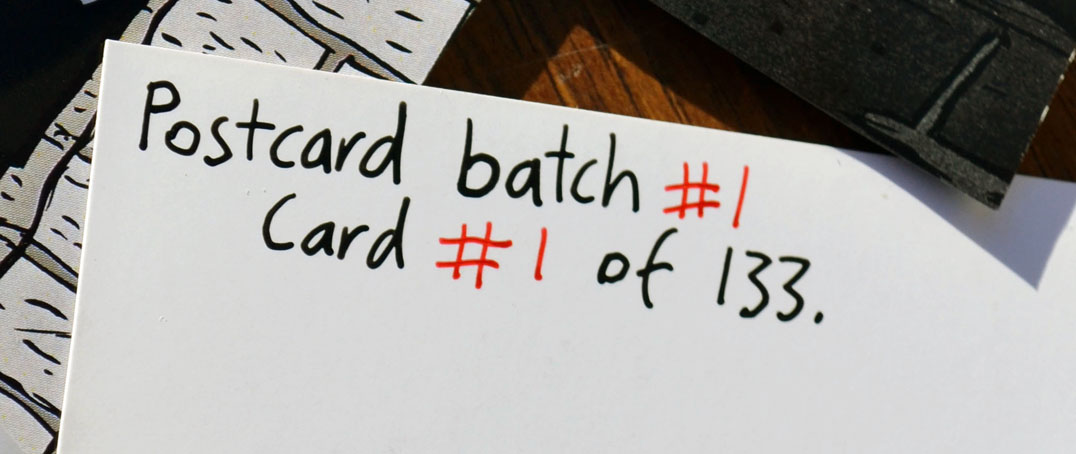 Postcard batch #1
Card #1 of 133.